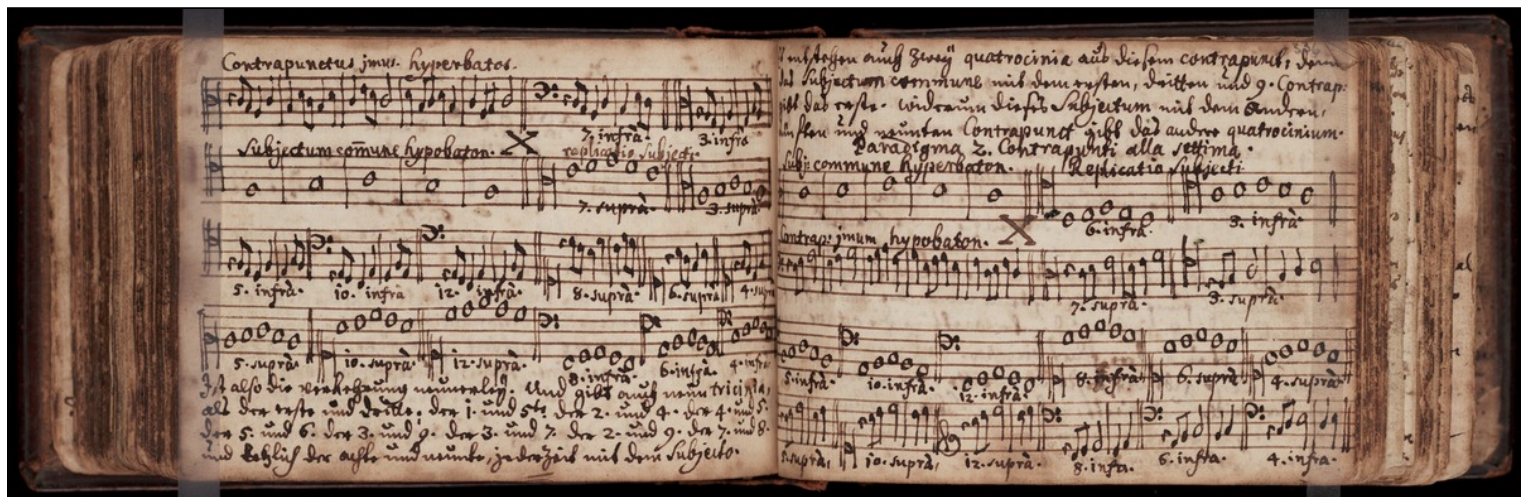 Contrapunctus jmus. hyperbatos.
7. infrà. 3. infrà
Subjectum com̄une hypobaton. X replicatio subjecti.
7. suprà. 3. suprà.
5. infrà. 10. infrà 12. infrà. 8. suprà. 6. suprà 4. suprà
5. suprà. 10. suprà. 12. suprà. 8. infrà. 6. infrà. 4. infrà
Ist also die verkehrung neunerley. Und gibt auch neun tricinia,
als der erste und dritte. der 1. und 5te. der 2. und 4. der 4. und 5.
der 5. und 6. der 3. und 9. der 3. und 7. der 2. und 9. der 7. und 8.
und letzlich der achte und neunte, jederzeit mit dem Subjecto.
entstehen auch zweÿ quatrocinia aus diesem contrapunct, denn
das Subjectum commune mit dem ersten, dritten und 9. Contrap:
gibt das erste. widerum dieses Subjectum mit dem anderen,
fünften und neunten Contrapunct gibt das andere quatrocinium.
Paradigma 2. Contrapunti alla settima.
Subj: commune hyperbaton. Replicatio Subjecti
6. infrà. 3. infrà.
Contrap: jmum hypobaton. X
7. suprà. 3. suprà.
5. infrà. 10. infrà. 12. infrà. 8. infrà. 6. suprà. 4. suprà
suprà, 10. suprà, 12. suprà. 8. infra. 6. infra. 4. infra.